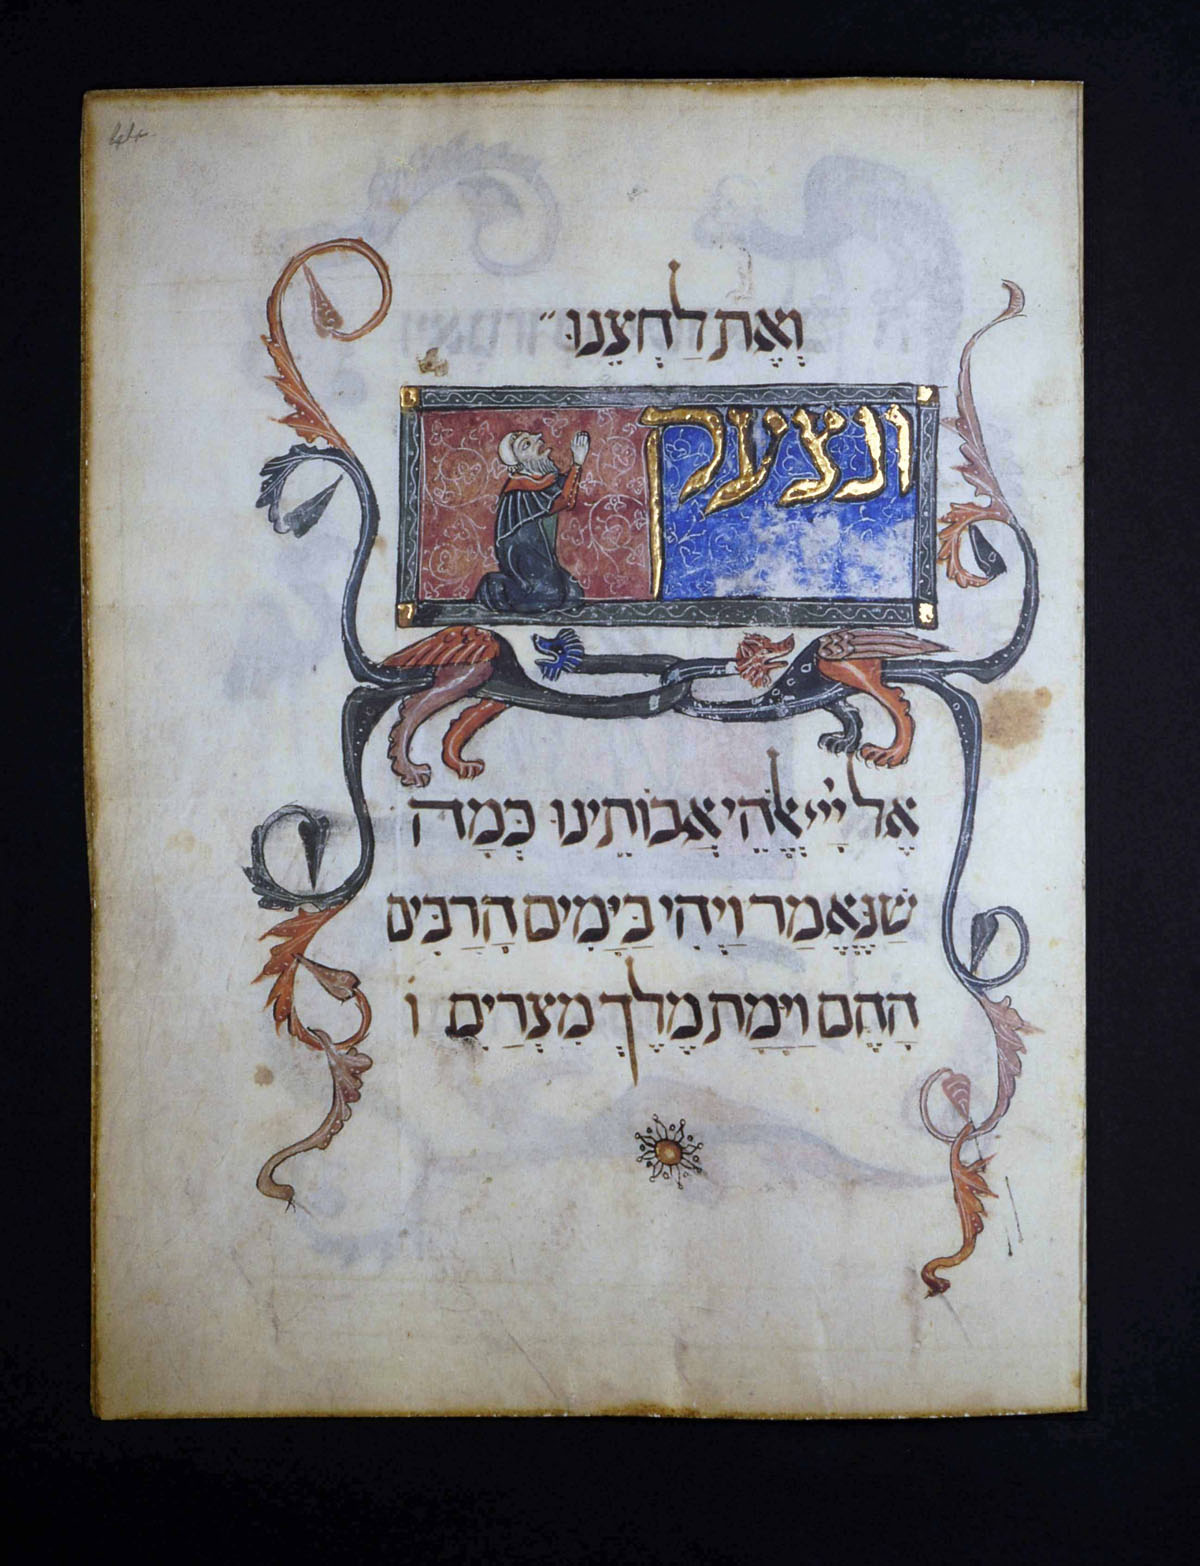 וְאֶת לַחְצֵנוּ ״
ונצעק
אֶל יְיָ אֱלֹהֵי אֲבוֹתֵינוּ כְּמָה
שֶׁנֶּאֱמַר וַיְהִי בַיָּמִים הָרַבִּים
הָהֵם וַיָּמָת מֶלֶךְ מִצְרַיִם ו